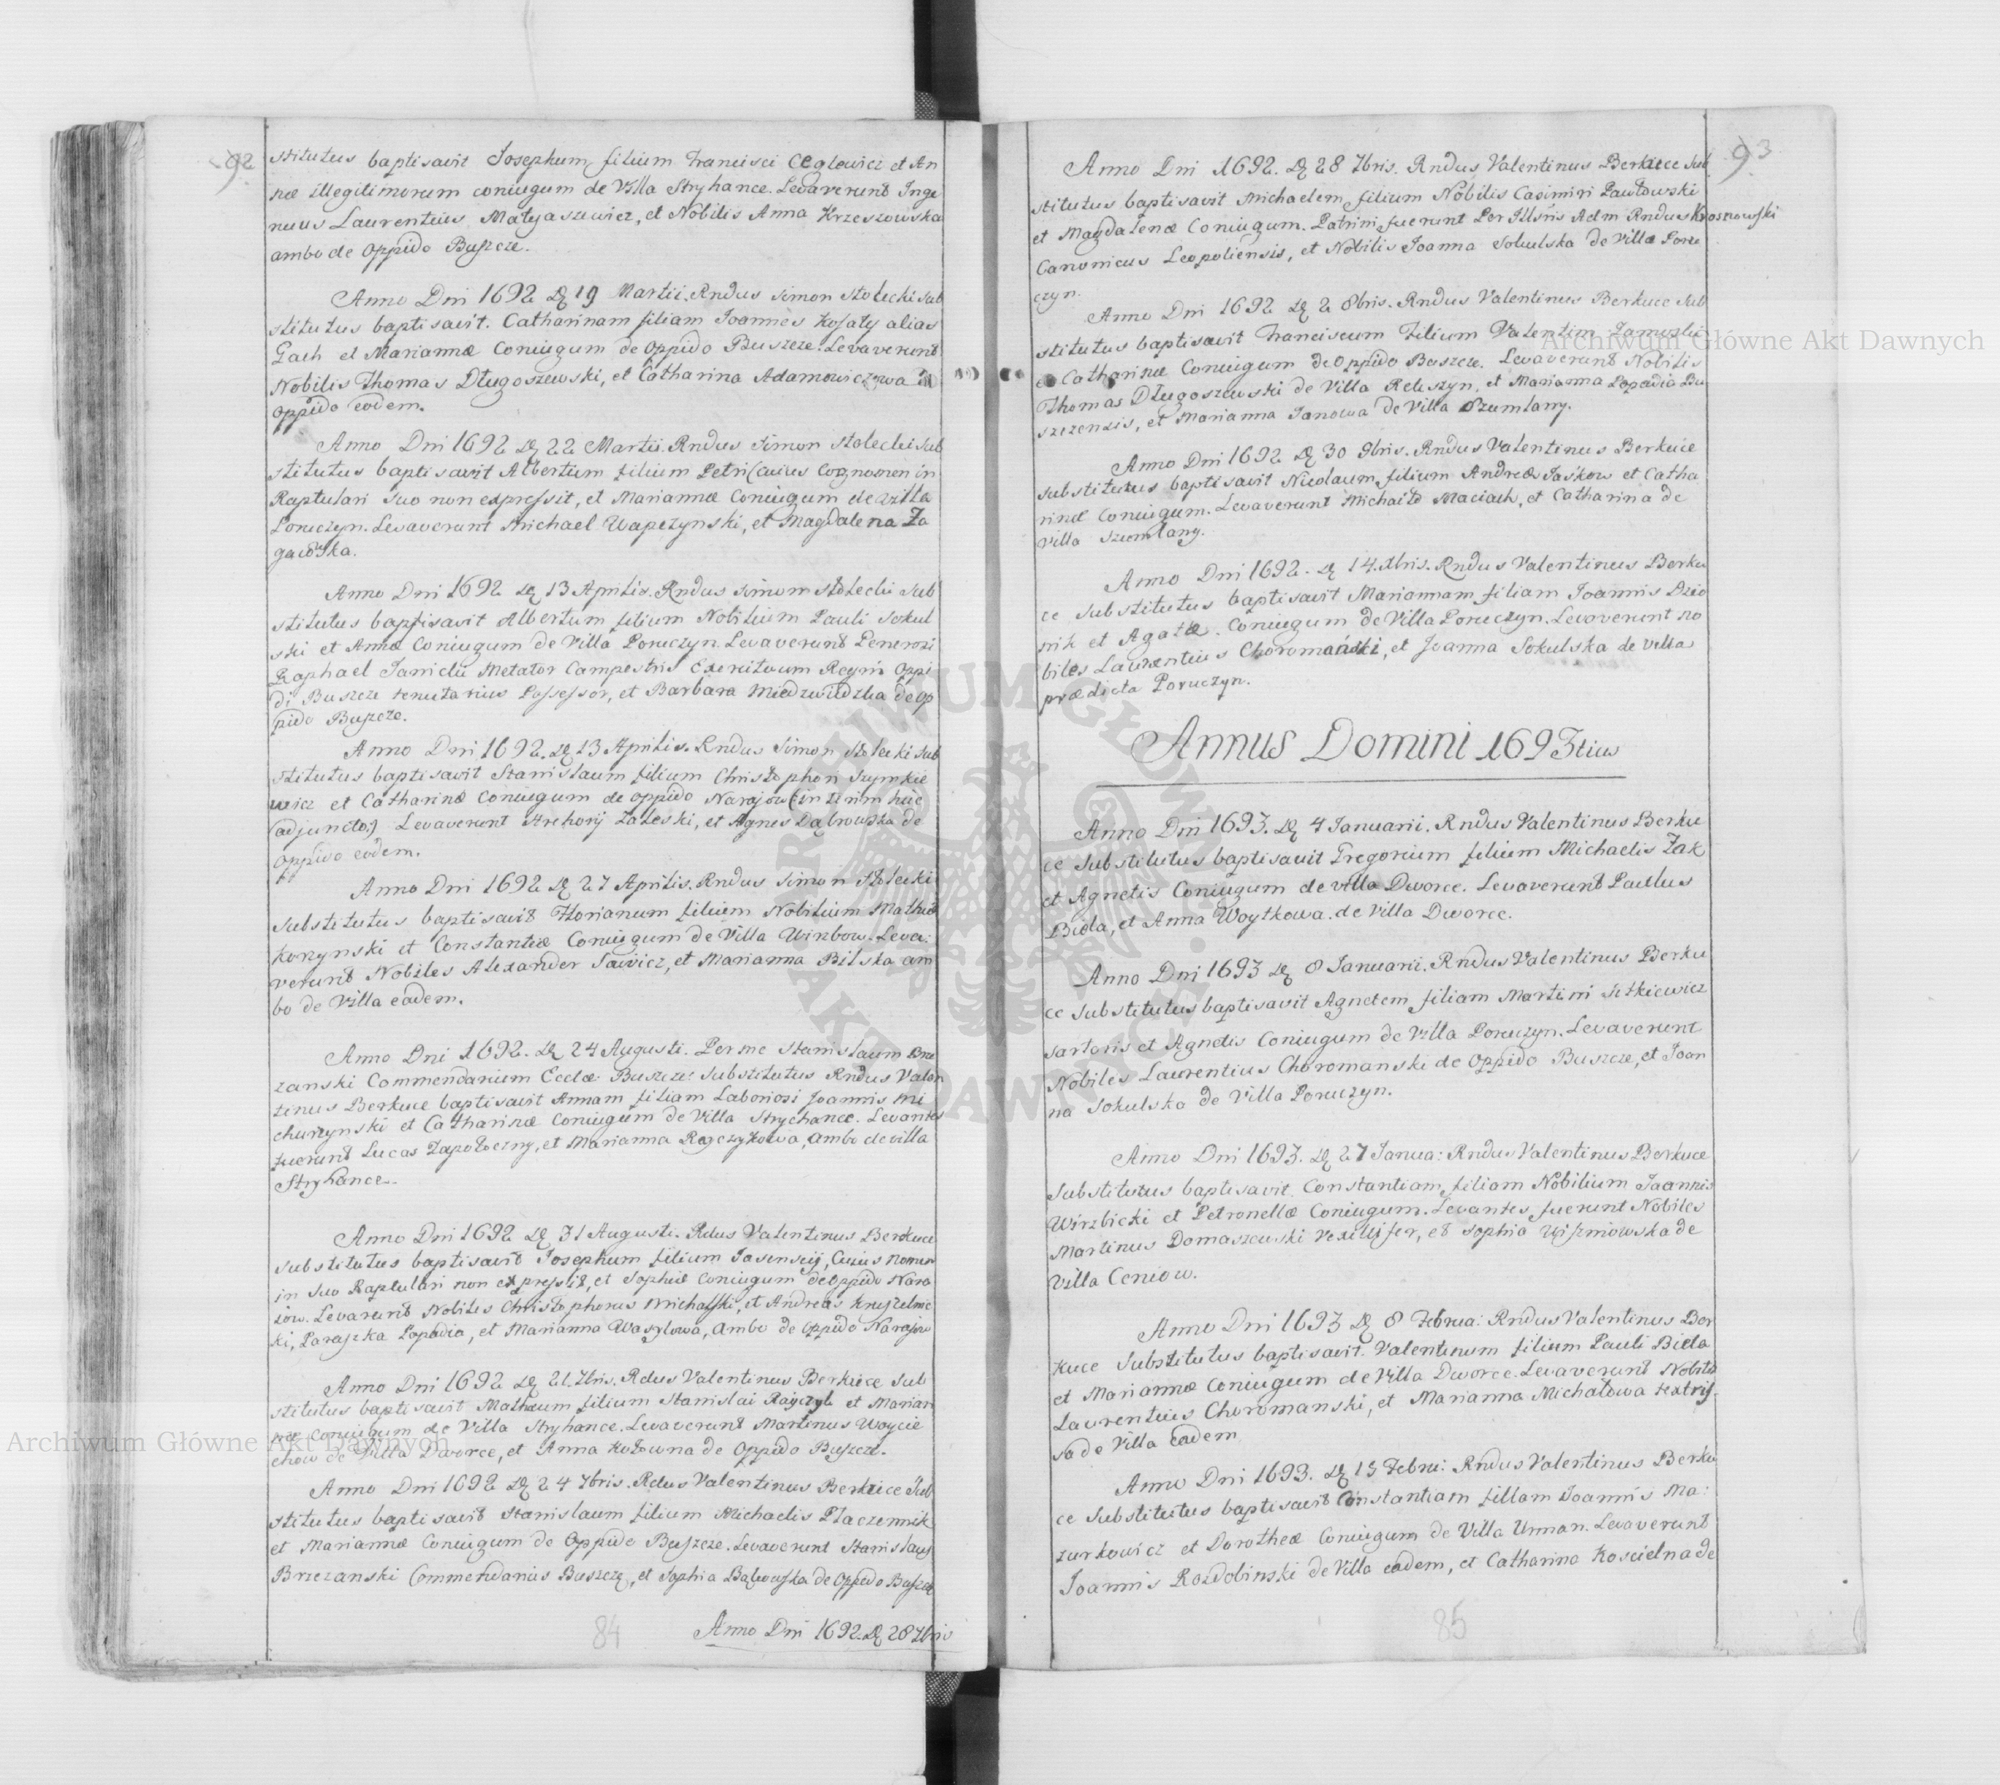 92
stitutus baptisavit Josephum filium Francisci Ceglewicz et An
næ illegitimorum coniugum de Villa Stryhance. Levaverunt Inge
nuus Laurentius Matyaszewicz, et Nobilis Anna Krzeszowska
ambo de Oppido Buszcze.
Anno Dni 1692 Dę 19 Martii. Rndus Simon Stołecki Sub
stitutus baptisavit. Catharinam filiam Joannes Kosaty alias
Gach et Mariannæ Coniugum de Oppido Buszcze. Levaverunt
Nobilis Thomas Długoszewski, et Catharina Adamowiczowa
Oppido eodem.
Anno Dni 1692 Dę 22 Martii Rndus Simon Stołecki Sub
stitutus baptisavit Albertum filium Petri (cuius Cognomen in
Raptulari Suo non expressit, et Mariannæ Coniugum de Villa
Poruczyn. Levaverunt Michael Wapczynski, et Magdalena Za
gawska.
Anno Dni 1692 Dę 13 Aprilis. Rndus Simon Stołecki Sub
stitutus baptisavit Albertum filium Nobilium Pauli Sokul
ski et Annæ Coniugum de Villa Poruczyn. Levaverunt Generosi
Raphael Janicki Metator Campestris Exercituum Regni Oppi
di Buszcze tenutarius Possessor, et Barbara Miedzwiedzka de Op
pido Buszcze.
Anno Dni 1692. Dę 13 Aprilis. Rndus Simon Stołecki Sub
stitutus baptisavit Stanislaum filium Christophori Szymkie
wicz et Catharinæ Coniugum de oppido Narajow (interim huic
adjuncto) Levaverunt Hrehory Zaleski, et Agnes Dąbrowska de
Oppido eodem.
Anno Dni 1692 Dę 27 Aprilis. Rndus Simon Stołecki
Substitutus baptisavit Florianum filium Nobilium Mathiæ
Korzynski et Constantiæ Coniugum de Villa Wirzbow. Leva:
verunt Nobiles Alexander Sawicz, et Marianna Bilska am
bo de Villa eadem.
Anno Dni 1692. Dę 24 Augusti. Per me Stanislaum Brze
zanski Commendarium Ecclæ Buszcze: Substitutus Rndus Valen
tinus Berkuce baptisavit Annam filiam Laboriosi Joannis Mi
churzynski et Catharinæ Coniugum de Villa Strychance. Levantes
fuerunt Lucas Zapołoczny, et Marianna Rayczykowa, ambo de villa
Stryhance.
Anno Dni 1692 Dę 31 Augusti. Rdus Valentinus Berkuce
Substitutus baptisavit Josephum filium Jasenscij, Cuius nomen
in Suo Raptulari non expressit, et Sophiæ Coniugum de Oppido Nara
iow. Levarunt Nobiles Christophorus Michalski, et Andreas Kruszelnic
ki, Paraszka Popadia, et Marianna Wasylowa, Ambo de Oppido Narajow
Anno Dni 1692 Dę 21. 7bris. Rdus Valentinus Berkuce Sub
stitutus baptisavit Mathæum filium Stanislai Rayczyk et Marian
næ Coniugum de Villa Stryhance. Levaverunt Martinus Woycie
chow de Villa Dworce, et Anna Kozowna de Oppido Buszcze.
Anno Dni 1692 Dę 24 7bris. Rdus Valentinus Berkuce Sub
stitutus baptisavit Stanislaum filium Michaelis Placzennik
et Mariannæ Coniugum de Oppido Buszcze. Levaverunt Stanislaus
Brzezanski Commendarius Buszczę, et Sophia Bąkowska de Oppido Buszcze
Anno Dni 1692. Dę 28 7bris
84
93
Anno Dni 1692. Dę 28 7bris. Rndus Valentinus Berkuce Sub
stitutus baptisavit Michaelem filium Nobilis Casimiri Pawłowski
et Magdalenæ Coniugum. Patrini fuerunt Per Illsris Adm Rndus Krosnowski
Canonicus Leopoliensis, et Nobilis Joanna Sokulska de Villa Poru
czyn.
Anno Dni 1692 Dę 2 8bris. Rndus Valentinus Berkuce Sub
stitutus baptisavit Franciscum Filium Valentini
et Catharinæ Coniugum de Oppido Buszcze. Levaverunt Nobilis
Thomas Długoszewski de Villa Rekszyn, et Marianna Popadia Bu
szczensis, et Marianna Janowa de Villa Szumlany.
Anno Dni 1692 Dę 30 9bris. Rndus Valentinus Berkuce
Substitutus baptisavit Nicolaum filium Andreæ Jaśkow et Catha
rinæ Coniugum. Levaverunt Michaiło Maciach, et Catharina de
villa Szumlany.
Anno Dni 1692. Dę 14. Xbris. Rndus Valentinus Berku
ce Substitutus baptisavit Mariannam filiam Joannis Dzio
nik et Agathæ. Coniugum de Villa Poruczyn. Levaverunt no
biles Laurentius Choromański, et Joanna Sokulska de villa
prædicta Poruczyn.
Annus Domini 1693tius
Anno Dni 1693. Dę 4 Januarii. Rndus Valentinus Berku
ce Substitutus baptisavit Gregorium filium Michaelis Zak
et Agnetis Coniugum de villa Dworce. Levaverunt Paulus
Bieła, et Anna Woytkowa. de Villa Dworce.
Anno Dni 1693 Dę 8 Januarii. Rndus Valentinus Berku
ce Substitutus baptisavit Agnetem filiam Martini Sitkiewicz
sartoris et Agnetis Coniugum de Villa Poruczyn. Levaverunt
Nobiles Laurentius Choromanski de Oppido Buszcze, et Joan
na Sokulska de Villa Poruczyn.
Anno Dni 1693. Dę 27 Janua: Rndus Valentinus Berkuce
Substitutus baptisavit Constantiam filiam Nobilium Joannis
Wirzbicki et Petronellæ Coniugum. Levantes fuerunt Nobiles
Martinus Domaszewski Vexillifer, et Sophia Wiszniowska de
Villa Ceniow.
Anno Dni 1693 Dę 8 Februa: Rndus Valentinus Ber
kuce Substitutus baptisavit. Valentinum filium Pauli Bieła
et Mariannæ Coniugum de Villa Dworce. Levaverunt Nobilis
Laurentius Choromanski, et Marianna Michałowa textris-
sa de Villa eadem
Anno Dni 1693. Dę 15 Febru: Rndus Valentinus Berku
ce Substitutus baptisavit Constantiam filiam Joannis Ma:
zurkowicz et Dorotheæ Coniugum de Villa Urman. Levaverunt
Joannis Rozdobinski de Villa eadem, et Catharina Koscielna de
85
Archiwum Główne Akt Dawnych
Archiwum Główne Akt Dawnych
ARCHIWUM GŁÓWNE
AKT DAWNYCH